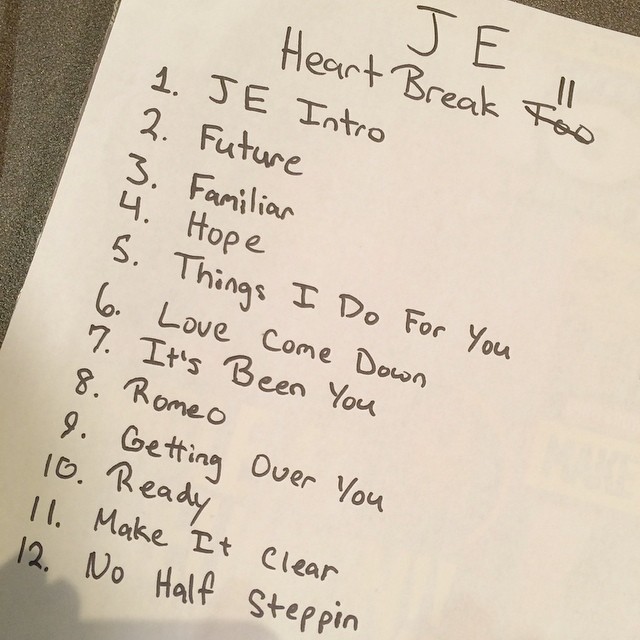 J E
Heart Break Too II
1. JE Intro
2. Future
3. Familiar
4. Hope
5. Things I Do For You
6. Love Come Down
7. It's Been You
8. Romeo
9. Getting Over You
10. Ready
11. Make It Clear
12. No Half Steppin